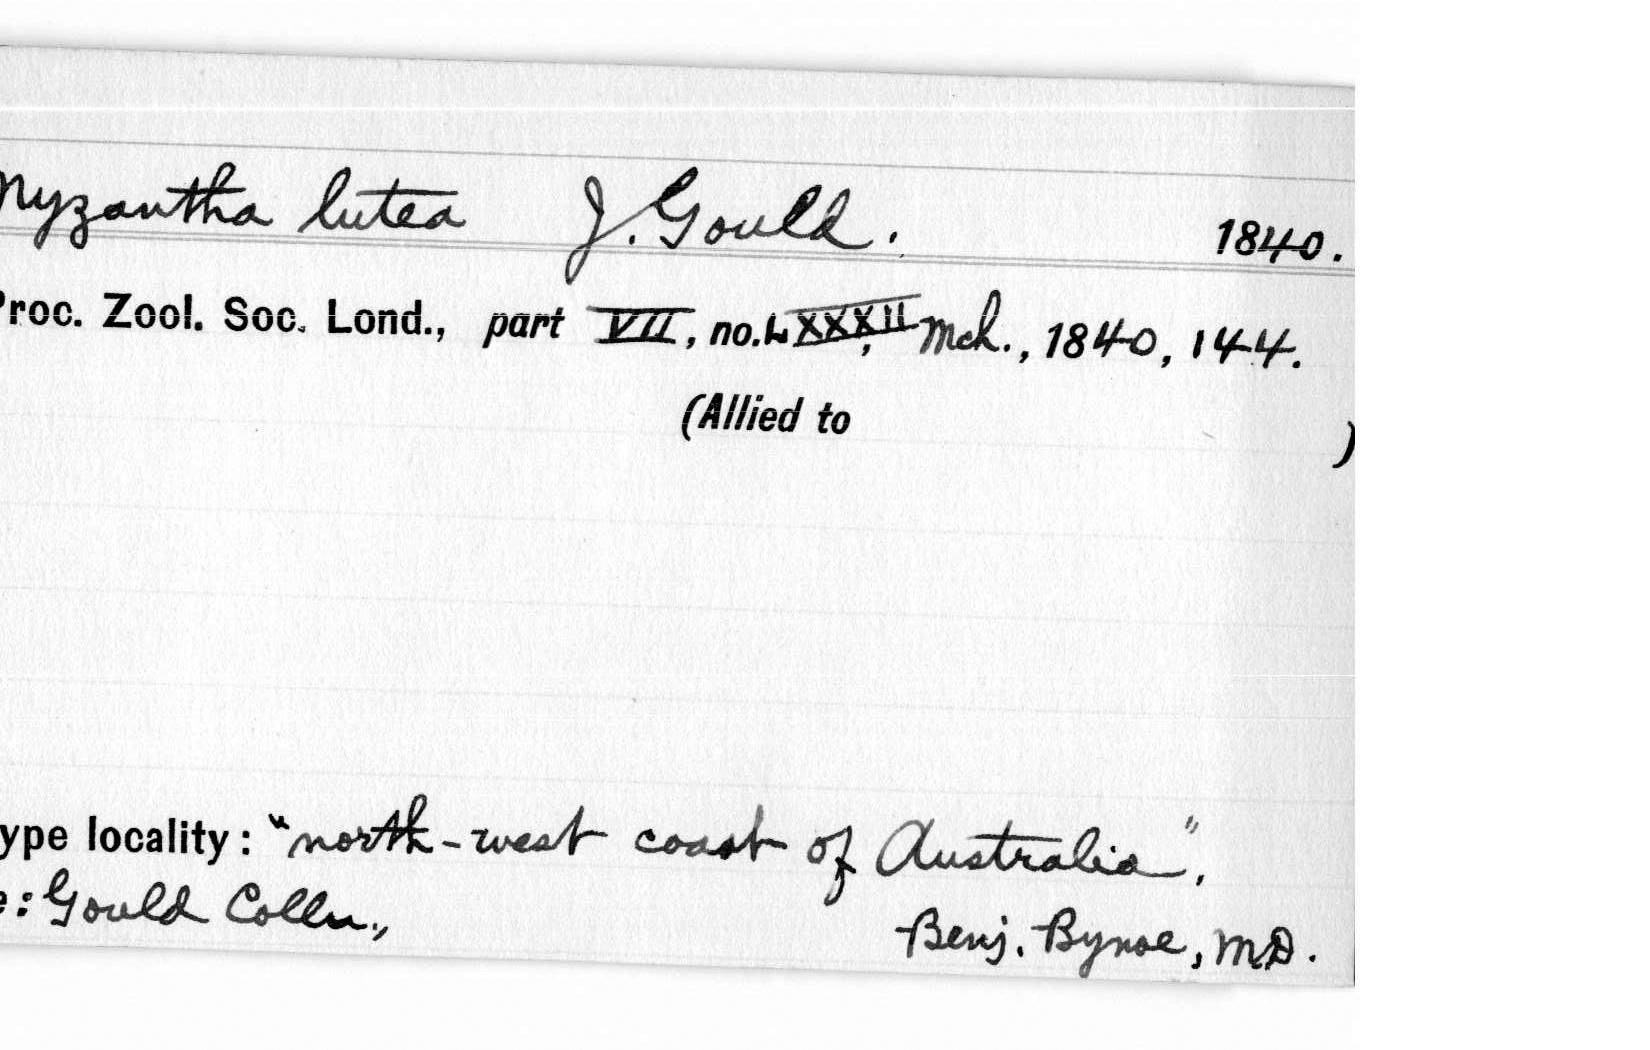 Myzantha lutea J. Gould. 1840.
Proc. Zool. Soc. Lond., part VII, no. LXXXII, Mch., 1840, 144.
(Allied to )
ype locality: "north-west coast of Australia",
e: Gould Colln., Benj. Bynoe, M.D.